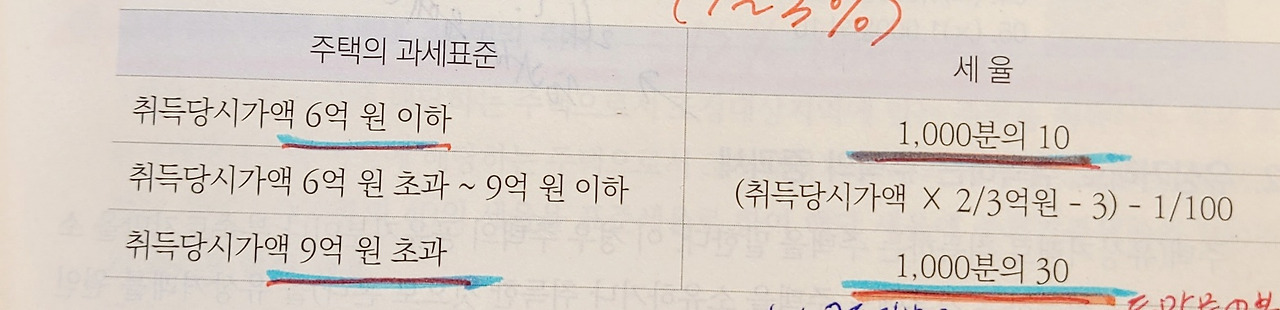 (1~3%)
주택의 과세표준 세 율
취득당시가액 6억 원 이하 1,000분의 10
취득당시가액 6억 원 초과 ~ 9억 원 이하 (취득당시가액 × 2/3억원 - 3) - 1/100
취득당시가액 9억 원 초과 1,000분의 30